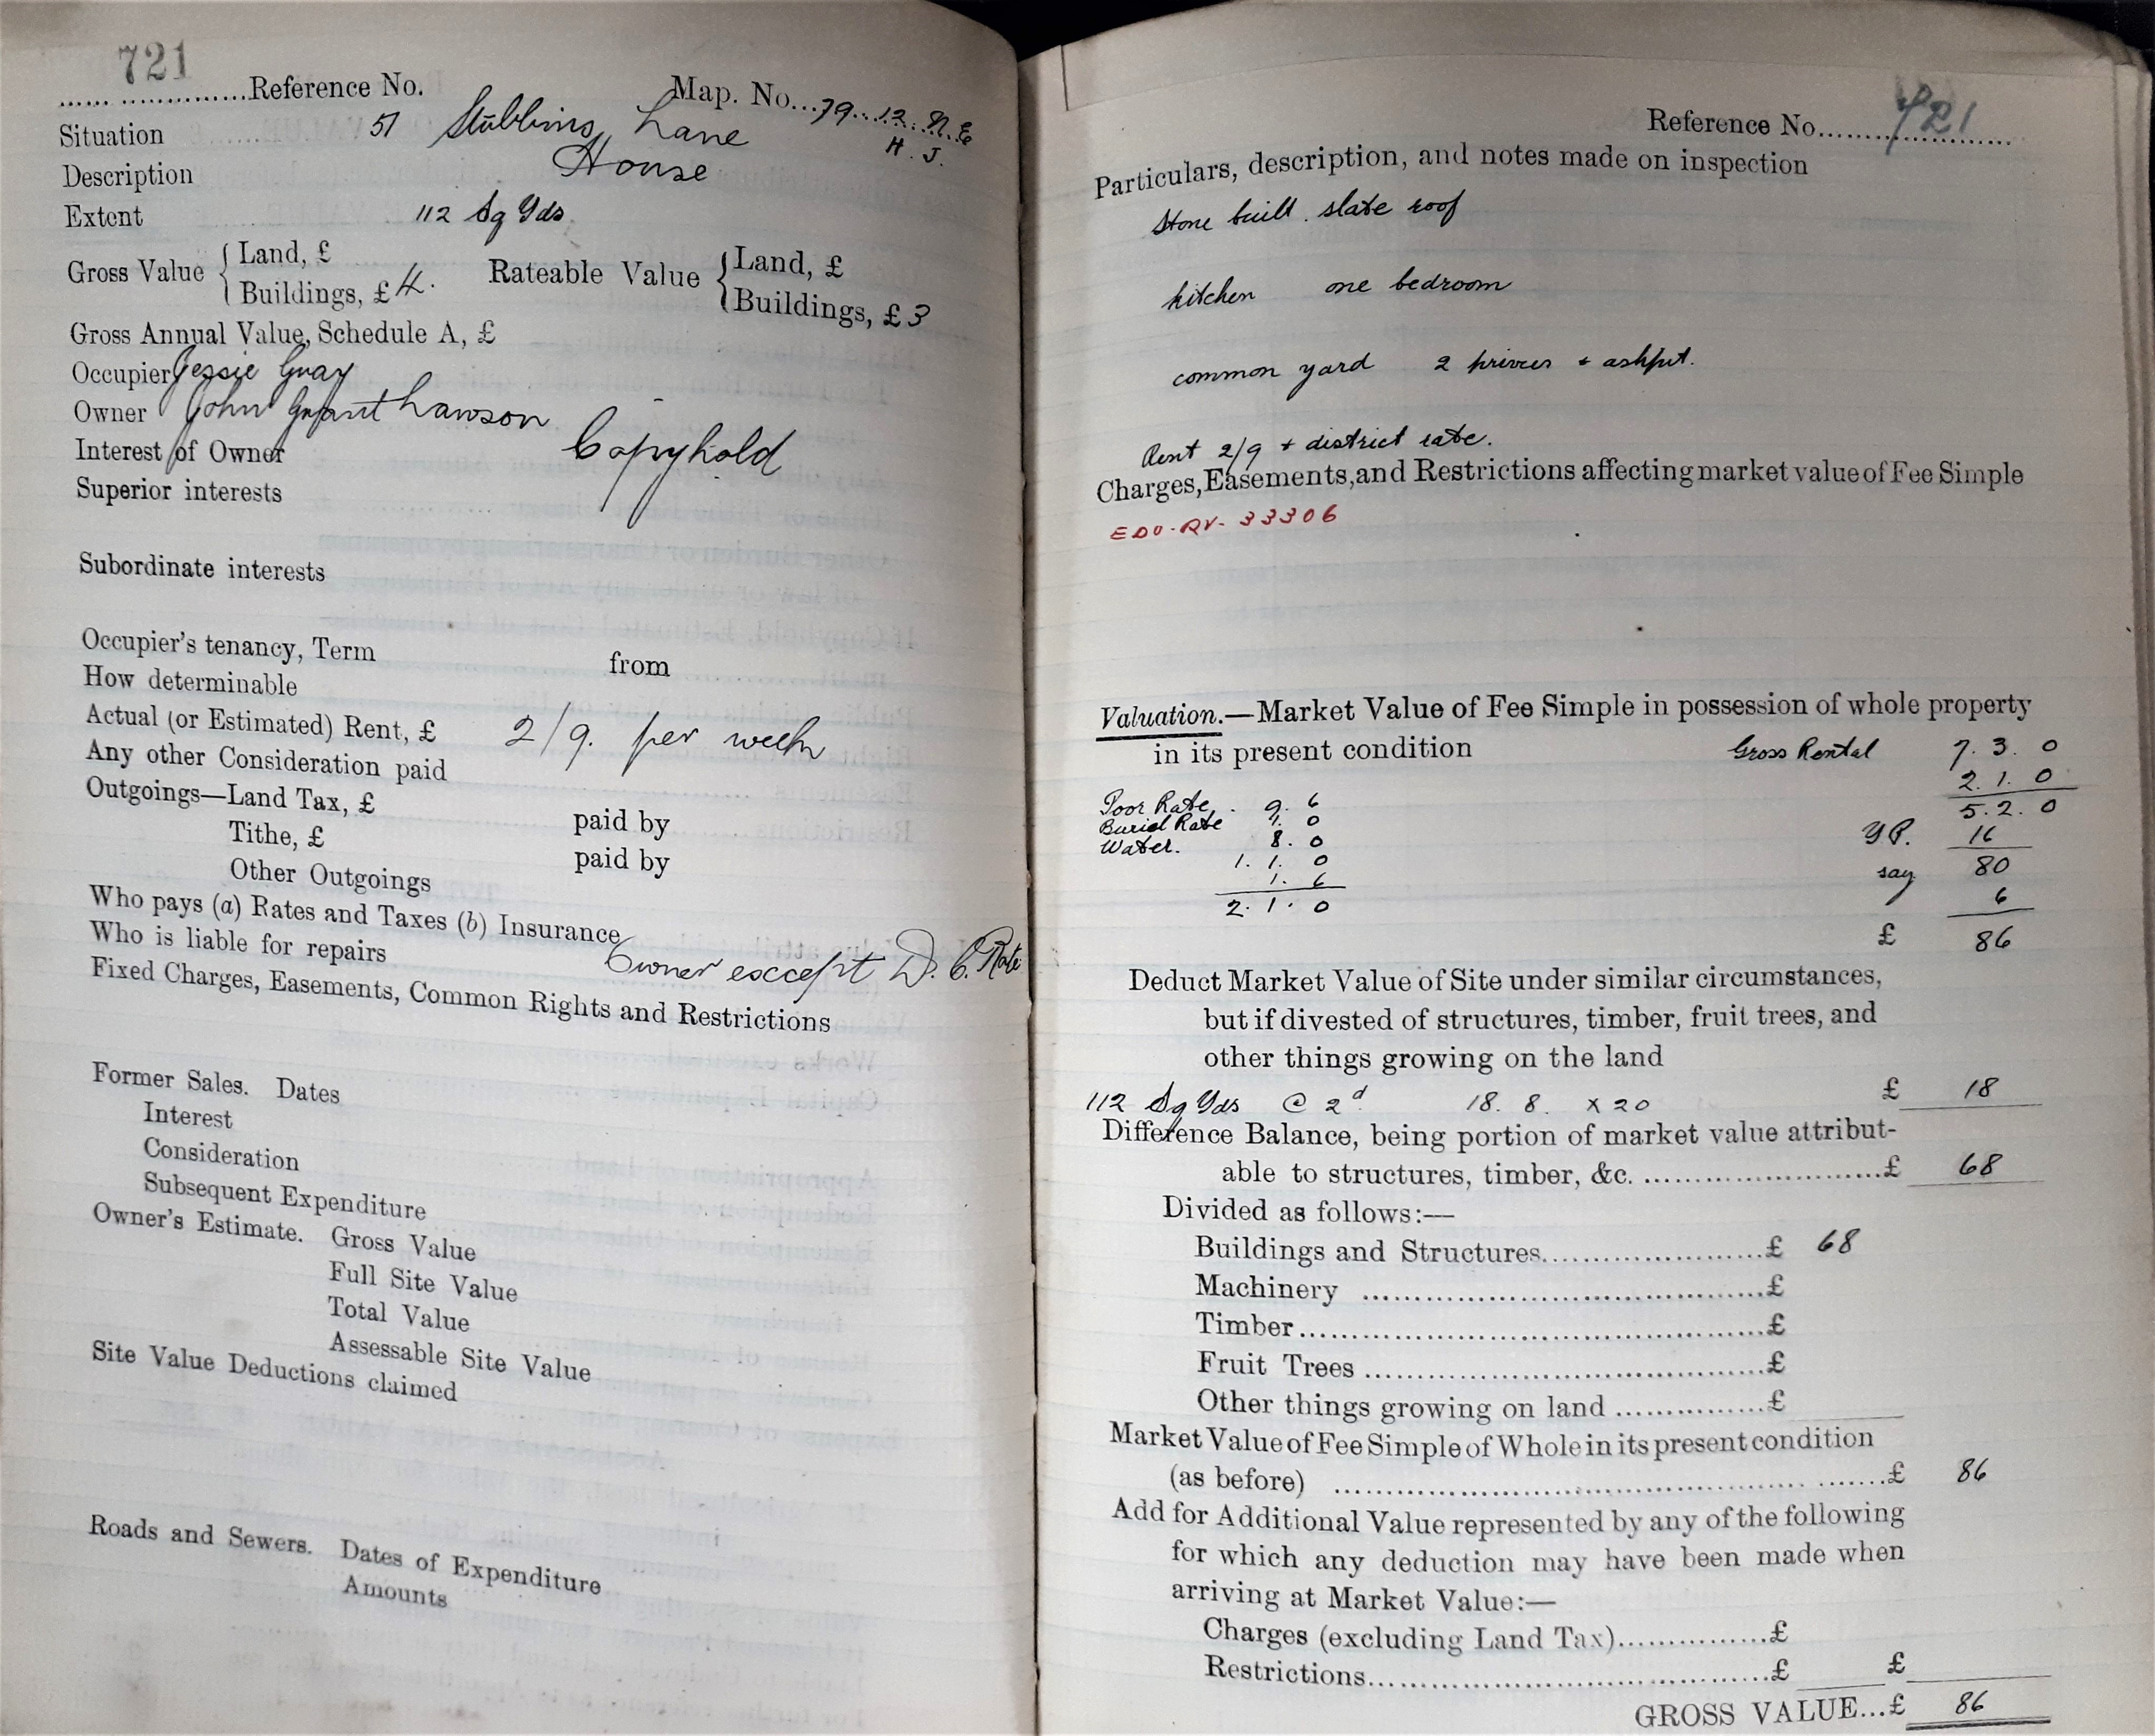 721
...... ...............Reference No. Map. No...79...12. N.E
H. J.
Situation 51 Stubbins Lane
Description House
Extent 112 Sq Yds
Gross Value { Land, £ Rateable Value { Land, £
Buildings, £ 4. Buildings, £ 3
Gross Annual Value, Schedule A, £
Occupier Jessie Guay
Owner John Grant Lawson
Interest of Owner Copyhold
Superior interests
Subordinate interests
Occupier's tenancy, Term from
How determinable
Actual (or Estimated) Rent, £ 2/9. per week
Any other Consideration paid
Outgoings—Land Tax, £ paid by
Tithe, £ paid by
Other Outgoings
Who pays (a) Rates and Taxes (b) Insurance
Who is liable for repairs Owner except D. C. Rate
Fixed Charges, Easements, Common Rights and Restrictions
Former Sales. Dates
Interest
Consideration
Subsequent Expenditure
Owner's Estimate. Gross Value
Full Site Value
Total Value
Assessable Site Value
Site Value Deductions claimed
Roads and Sewers. Dates of Expenditure
Amounts
Reference No.....721
Particulars, description, and notes made on inspection
Stone built. slate roof
kitchen one bedroom
common yard 2 privies + ashpit.
Rent 2/9 + district rate.
Charges, Easements, and Restrictions affecting market value of Fee Simple
EDO-RV-33306
Valuation.—Market Value of Fee Simple in possession of whole property
in its present condition Gross Rental 7. 3. 0
2. 1. 0
Poor Rate. 9. 6 5. 2. 0
Burial Rate 1. 0 Y P. 16
Water. 8. 0
1. 1. 0 say 80
1. 6 6
2. 1. 0
£ 86
Deduct Market Value of Site under similar circumstances,
but if divested of structures, timber, fruit trees, and
other things growing on the land
112 Sq Yds @ 2d 18. 8. x 20 £ 18
Difference Balance, being portion of market value attribut-
able to structures, timber, &c. ........................£ 68
Divided as follows:—
Buildings and Structures......................£ 68
Machinery ........................................£
Timber..............................................£
Fruit Trees .......................................£
Other things growing on land ...............£
Market Value of Fee Simple of Whole in its present condition
(as before) ..............................................£ 86
Add for Additional Value represented by any of the following
for which any deduction may have been made when
arriving at Market Value:—
Charges (excluding Land Tax)...............£
Restrictions........................................£ £
GROSS VALUE...£ 86